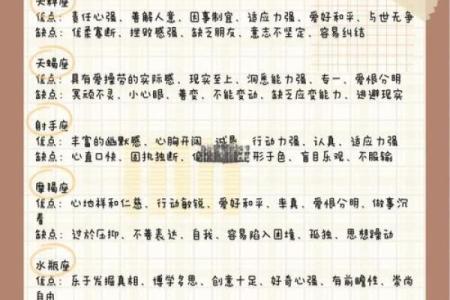 天秤座
优点：责任心强、善解人意、因事制宜、适应力强、爱好和平、与世无争
缺点：优柔寡断、挫败感强、缺乏朋友、意志不坚定、容易纠结
天蝎座
优点：具有爱 劳的实际感、现实至上、洞悉能力强、专一、爱恨分明
缺点：冥顽不灵、小心眼、善变、不能变动、缺乏应变能力、逃避现实
射手座
优点：丰富的幽默感、心胸开阔、诚、行动力强、认真、适应力强
缺点：心直口快、固执独断、形于色、盲目乐观、不服输
摩羯座
优点：心地祥和仁慈、行动敏锐、爱好和平、率真、爱恨分明、做事沉
着
缺点：过於压抑、不善表达、自我、容易陷入困境、孤独、思想躁动
水瓶座
优点：乐于发掘真相、博学多思、创意十足、好奇心强、有前瞻性、崇尚
自由